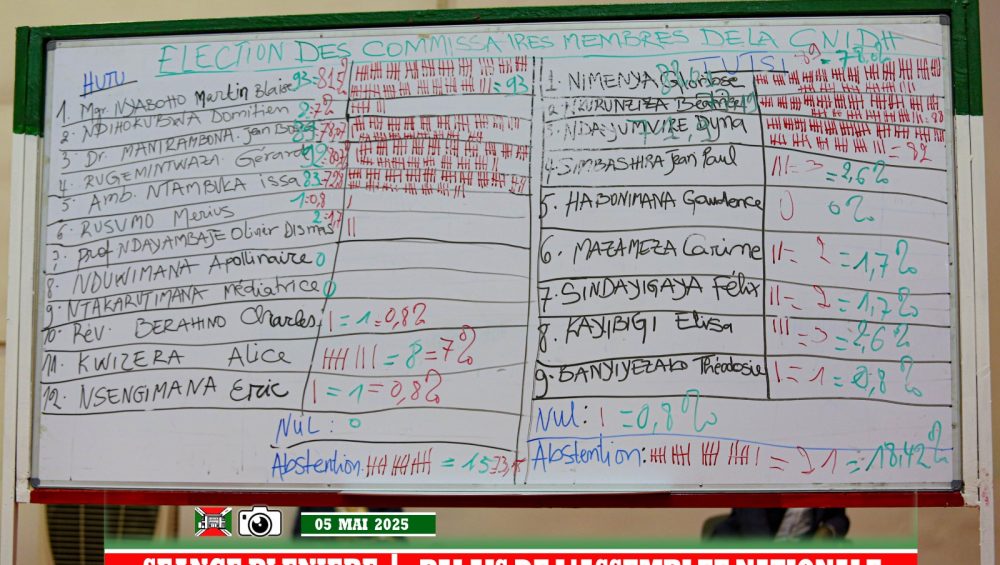 ELECTION DES COMMISSAIRES MEMBRES DE LA CNIDH
HUTU
1. Mgr NYABOHO Martin Blaise 93=81% = 93
2. NDIHOKUBWA Domitien 2
3 Dr. MANIRAMBONA Jean
4. RUGEMINTWAZA Gérard
5. Amb. NTAMBUKA issa 83
6. RUSUMO Merius 1=0,8
7. Prof NDAYAMBAJE Olivier DISMAS 2=1,7
8. NDUWIMANA Apollinaire 0
9. NTAKARUTIMANA Médiatrice 0
10. Rév. BERAHINO Charles | = 1 = 0,8%
11. KWIZERA Alice |||| ||| = 8 = 7%
12. NSENGIMANA Eric | = 1 = 0,8%
NUL : 0
Abstention: = 15
TUTSI
1. NIMENYA Gloriose
2. NKURUNZIZA Béatrice
3. NDAYUMVIRE, Dyna = 82
4. SIMBASHIRA Jean Paul ||| = 3 = 2,6%
5. HABONIMANA Gaudence 0 0%
6. MAZAMEZA Carine || = 2 = 1,7%
7. SINDAYIGAYA Félix || = 2 = 1,7%
8. KAYIBIGI Elisa ||| = 3 = 2,6%
9. BANYIYEZAKO Théodosie | = 1 = 0,8%
NUL: | = 0,8%
Abstention: = 21 = 18,42%
05 MAI 2025
SEANCE PLENIERE | PALAIS DE L'ASSEMBLEE NATIONALE